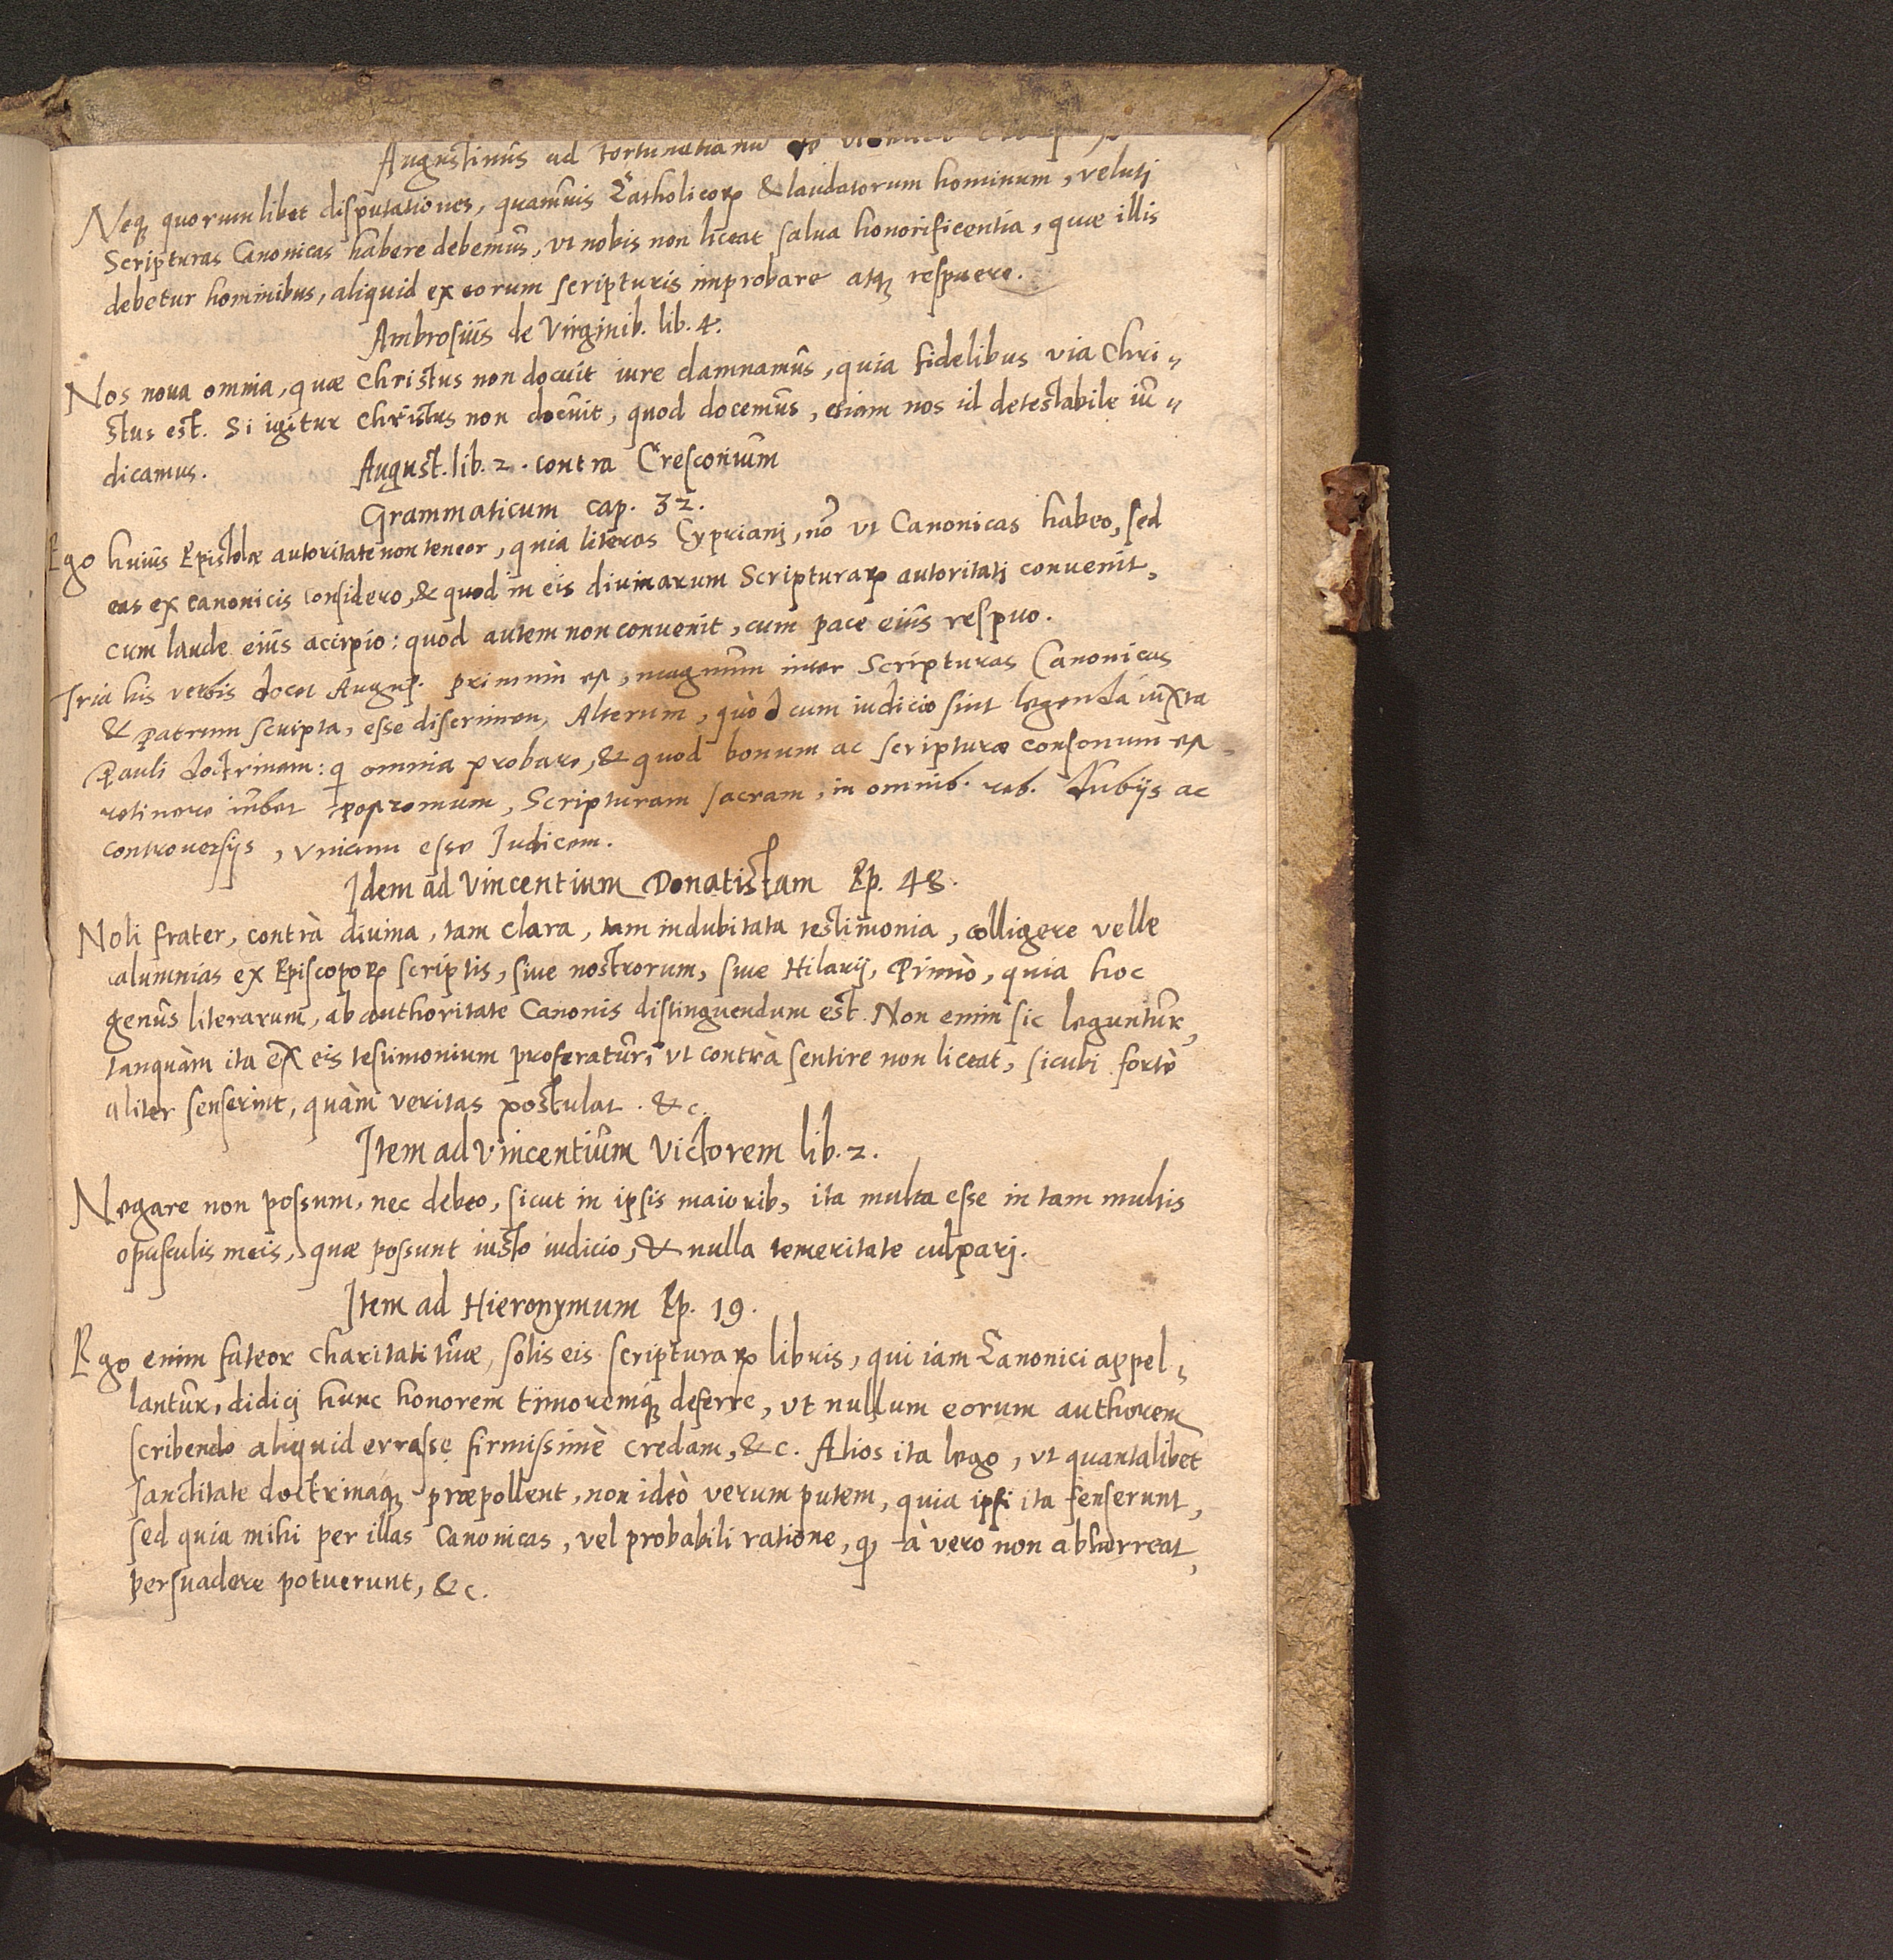 Augustinus ad Fortunatianu de
Neq; quorumlibet disputationes, quamuis Catholicoꝝ & laudatorum hominum, velutj
Scripturas Canonicas habere debemus, vt nobis non liceat salua honorificentia, quæ illis
debetur hominibus, aliquid ex eorum scripturis improbare atq; respuere.
Ambrosius de Virginib. lib. 4.
Nos noua omnia, quæ Christus non docuit iure damnamus, quia fidelibus via Chri„
stus est. Si igitur Christus non docuit, quod docemus, etiam nos id detestabile iu„
dicamus. August. lib. 2. contra Cresconium
Grammaticum cap. 32.
Ego huius Epistolæ autoritate non teneor, quia literas Cyprianj, nō vt Canonicas habeo, sed
eas ex canonicis considero, & quod in eis diuinarum Scripturaꝝ autoritatj conuenit,
cum laude eius accipio: quod autem non conuenit, cum pace eius respuo.
Tria his verbis docet August. primum est, magnum inter Scripturas Canonicas
& Patrum scripta, esse discrimen, Alterum, quòd cum iudicio sint legenda iuxta
Pauli doctrinam: q omnia probare, & quod bonum ac scripturæ consonum est,
retinere iubet Postremum, Scripturam sacram, in omnib. reb. dubijs ac
controuersijs, vnicum esse Iudicem.
Idem ad Vincentium Donatistam Ep. 48.
Noli frater, contrà diuina, tam clara, tam indubitata testimonia, colligere velle
calumnias ex Episcopoꝝ scriptis, siue nostrorum, siue Hilarij, Primò, quia hoc
genus literarum, ab authoritate Canonis distinguendum est. Non enim sic leguntur,
tanquàm ita ex eis testimonium proferatur, vt contrà sentire non liceat, sicubi fortè
aliter senserint, quàm veritas postulat. &c.
Item ad Vincentium Victorem lib. 2.
Negare non possum, nec debeo, sicut in ipsis maiorib, ita multa esse in tam multis
opusculis meis, quæ possunt iusto iudicio, & nulla temeritate culparj.
Item ad Hieronymum Ep. 19.
Ego enim fateor charitati tuæ, solis eis scripturaꝝ libris, qui iam Canonici appel„
lantur, didicj hunc honorem timoremq; deferre, vt nullum eorum authorem
scribendo aliquid errasse firmissimè credam, &c. Alios ita lego, vt quantalibet
sanctitate doctrinaq; præpollent, non ideò verum putem, quia ipsi ita senserunt,
sed quia mihi per illas Canonicas, vel probabili ratione, q à vero non abhorreat,
persuadere potuerunt, &c.